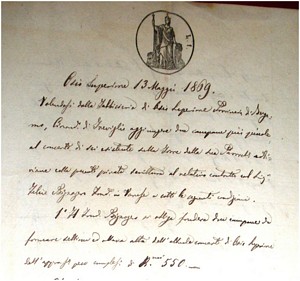 L. 1
Osio Superiore 13 Maggio 1869.
Volendosi dalla Fabbriceria di Osio Superiore Provincia di Berga-
mo, Circond. di Treviglio aggiungere due campane più piccole
al concerto di sei esistente sulla Torre della sua Parrocch.
viene colla presente privata scrittura al relativo contratto col Sig.
Felice Bizzozero Fond. in Varese e sotto le seguenti condizioni.
1° Il Fond. Bizzozero si obbliga fondere due campane da
formare settima ed ottava alta dell'attuale concerto di Osio Superiore
dell'approssi. peso complessi. di K. 550 —